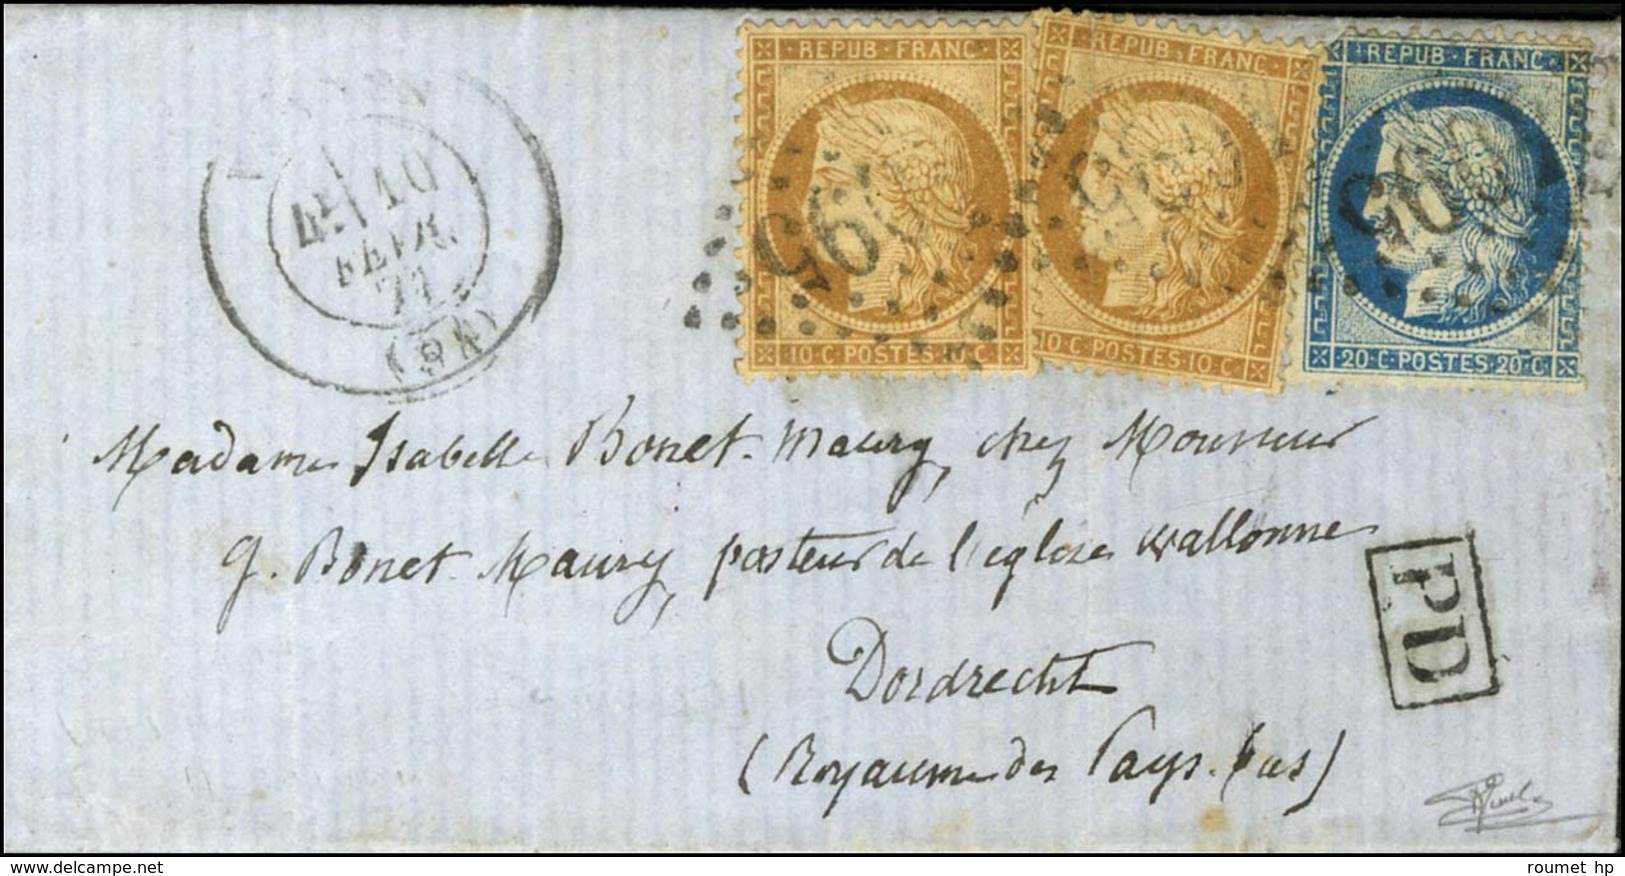 REPUB·FRANC
REPUB·FRANC
REPUB·FRANC
10·C·POSTES·10·C
10·C·POSTES·10·C
20·C·POSTES·20·C
4E 10
FEVR.
71
Madame Isabelle Bonet-Maury, chez Monsieur
G. Bonet-Maury, pasteur de l'église wallonne
Dordrecht
(Royaume des Pays-bas)
PD
delcampe.net
roumet hp